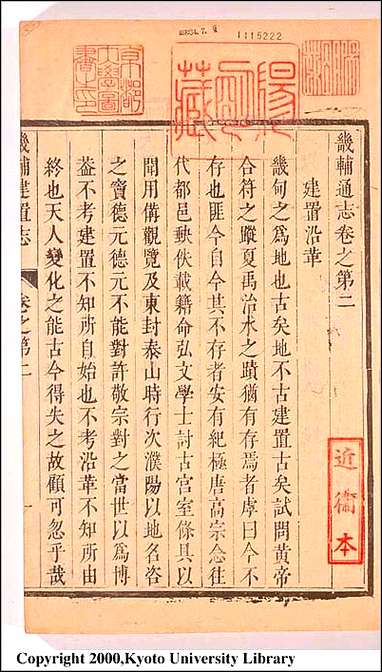 1115222
京都
大學圖
書之印
陽明
藏
近衞本
畿輔通志卷之第二
建置沿革
畿甸之爲地也古矣地不古建置古矣試問黃帝
合符之蹤夏禹治水之蹟猶有存焉者虖曰今不
存也匪今自今其不存者安有紀極唐高宗念往
代都邑軼佚載籍命弘文學士討古宮室條具以
聞用備觀覽及東封泰山時行次濮陽以地名咨
之竇德元德元不能對許敬宗對之當世以爲博
葢不考建置不知所自始也不考沿革不知所由
終也天人變化之能古今得失之故顧可忽乎哉
畿輔建置志 卷之第二 一
Copyright 2000,Kyoto University Library